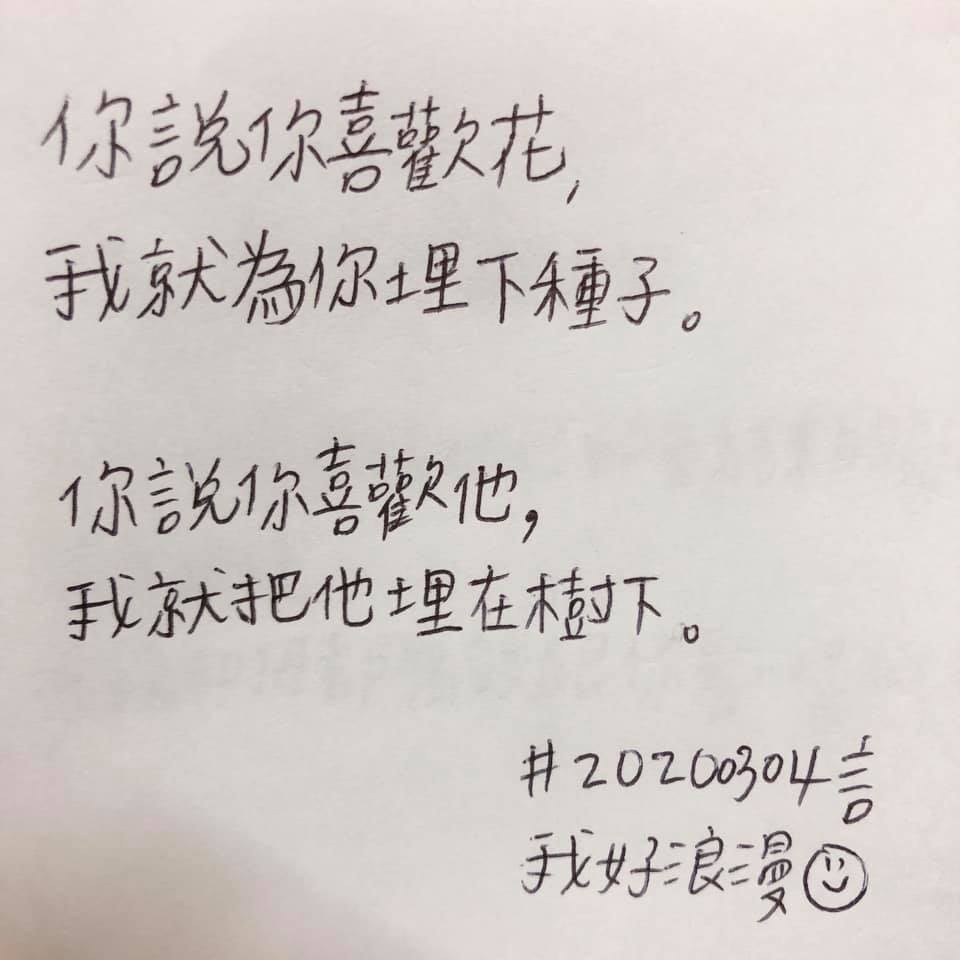 你說你喜歡花,
我就為你埋下種子。
你說你喜歡他,
我就把他埋在樹下。
#20200304言
我好浪漫☺